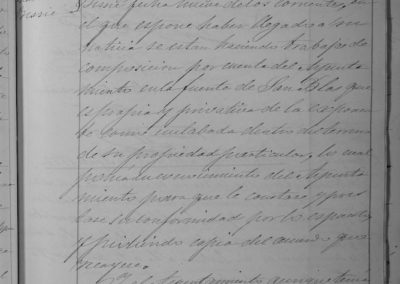 fecha nueve de los corrientes, en
el que espone haber llegado a su
noticia se estan haciendo trabajos de
composicion por cuenta del Ayunta
miento en la fuente de San Blas que
es propia y privativa de la esponen
te como enclabada dentro del terreno
de su propiedad particular, lo cual
pone en conocimiento del Ayunta
miento para que le conste y pres
tase su conformidad por lo espuesto,
y pidiendo copia del acuerdo que
recayere.
el Ayuntamiento aunque tenia